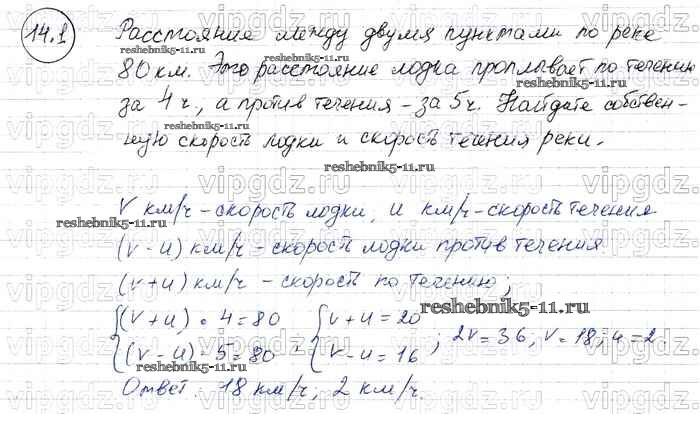 14.1 Расстояние между двумя пунктами по реке
80 км. Это расстояние лодка проплывает по течению
за 4 ч., а против течения – за 5 ч. Найдите собствен-
ную скорость лодки и скорость течения реки.
V км/ч – скорость лодки, u км/ч – скорость течения
(v - u) км/ч – скорость лодки против течения
(v + u) км/ч – скорость по течению;
{(v + u) · 4 = 80 ; {v + u = 20
{(v - u) · 5 = 80 ; {v - u = 16 ; 2v = 36; v = 18; u = 2.
Ответ: 18 км/ч; 2 км/ч.
reshebnik5-11.ru
vipgdz.ru